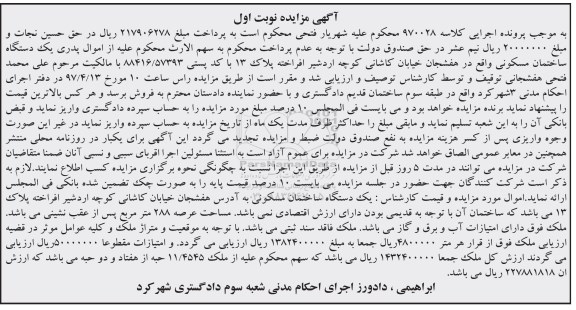 آگهی مزایده نوبت اول
به موجب پرونده اجرایی کلاسه ۹۷۰۰۲۸ محکوم علیه شهریار فتحی محکوم است به پرداخت مبلغ ۲۱۷۹۰۶۲۷۸ ریال در حق حسین نجات و
مبلغ ۲۰۰۰۰۰۰۰ ریال نیم عشر در حق صندوق دولت با توجه به عدم پرداخت محکوم به سهم الارث محکوم علیه از اموال پدری یک دستگاه
ساختمان مسکونی واقع در هفشجان خیابان کاشانی کوچه اردشیر افراخته پلاک ۱۳ با کد پستی ۸۸۴۱۶/۵۷۳۹۳ با مالکیت مرحوم علی محمد
فتحی هفشجانی توقیف و توسط کارشناس توصیف و ارزیابی شد و مقرر است از طریق مزایده راس ساعت ۱۰ مورخ ۹۷/۴/۱۳ در دفتر اجرای
احکام مدنی ۳شهرکرد واقع در طبقه سوم ساختمان قدیم دادگستری و با حضور نماینده دادستان محترم به فروش برسد و هر کس بالاترین قیمت
را پیشنهاد نماید برنده مزایده خواهد بود و می بایست فی المجلس ۱۰ درصد مبلغ مورد مزایده را به حساب سپرده دادگستری واریز نماید و قبض
بانکی آن را به این شعبه تسلیم نماید و مابقی مبلغ را حداکثر ظرف مدت یک ماه از تاریخ مزایده به حساب سپرده واریز نماید در غیر این صورت
وجوه واریزی پس از کسر هزینه مزایده به نفع صندوق دولت ضبط و مزایده تجدید می گردد این آگهی برای یکبار در روزنامه محلی منتشر
همچنین در معابر عمومی الصاق خواهد شد شرکت در مزایده برای عموم آزاد است به استثنا مسئولین اجرا اقربای سببی و نسبی آنان ضمنا متقاضیان
شرکت در مزایده می توانند در مدت ۵ روز قبل از مزایده از طریق این اجرا نسبت به چگونگی نحوه برگزاری مزایده کسب اطلاع نمایند.لازم به
ذکر است شرکت کنندگان جهت حضور در جلسه مزایده می بایست ۱۰ درصد قیمت پایه را به صورت چک تضمین شده بانکی فی المجلس
ارائه نماید.اموال مورد مزایده و قیمت کارشناس : یک دستگاه ساختمان مسکونی به آدرس هفشجان خیابان کاشانی کوچه اردشیر افراخته پلاک
۱۳ می باشد که ساختمان آن با توجه به قدیمی بودن دارای ارزش اقتصادی نمی باشد. مساحت عرصه ۲۸۸ متر مربع پس از عقب نشینی می باشد.
ملک فوق دارای امتیازات آب و برق و گاز می باشد. ملک فاقد سند ثبتی می باشد. با توجه به موقعیت و متراژ ملک و کلیه عوامل موثر در قضیه
ارزیابی ملک فوق از قرار هر متر ۴۸۰۰۰۰۰ریال جمعا به مبلغ ۱۳۸۲۴۰۰۰۰۰ ریال ارزیابی می گردد. و امتیازات مقطوعا ۵۰۰۰۰۰۰۰ریال ارزیابی
می گردند ارزش کل ملک جمعا ۱۴۳۲۴۰۰۰۰۰ ریال می باشد که سهم محکوم علیه از ملک ۱۱/۴۵۴۵ حبه از هفتاد و دو حبه می باشد که ارزش
ان ۲۲۷۸۸۱۸۱۸ ریال می باشد.
ابراهیمی ، دادورز اجرای احکام مدنی شعبه سوم دادگستری شهرکرد